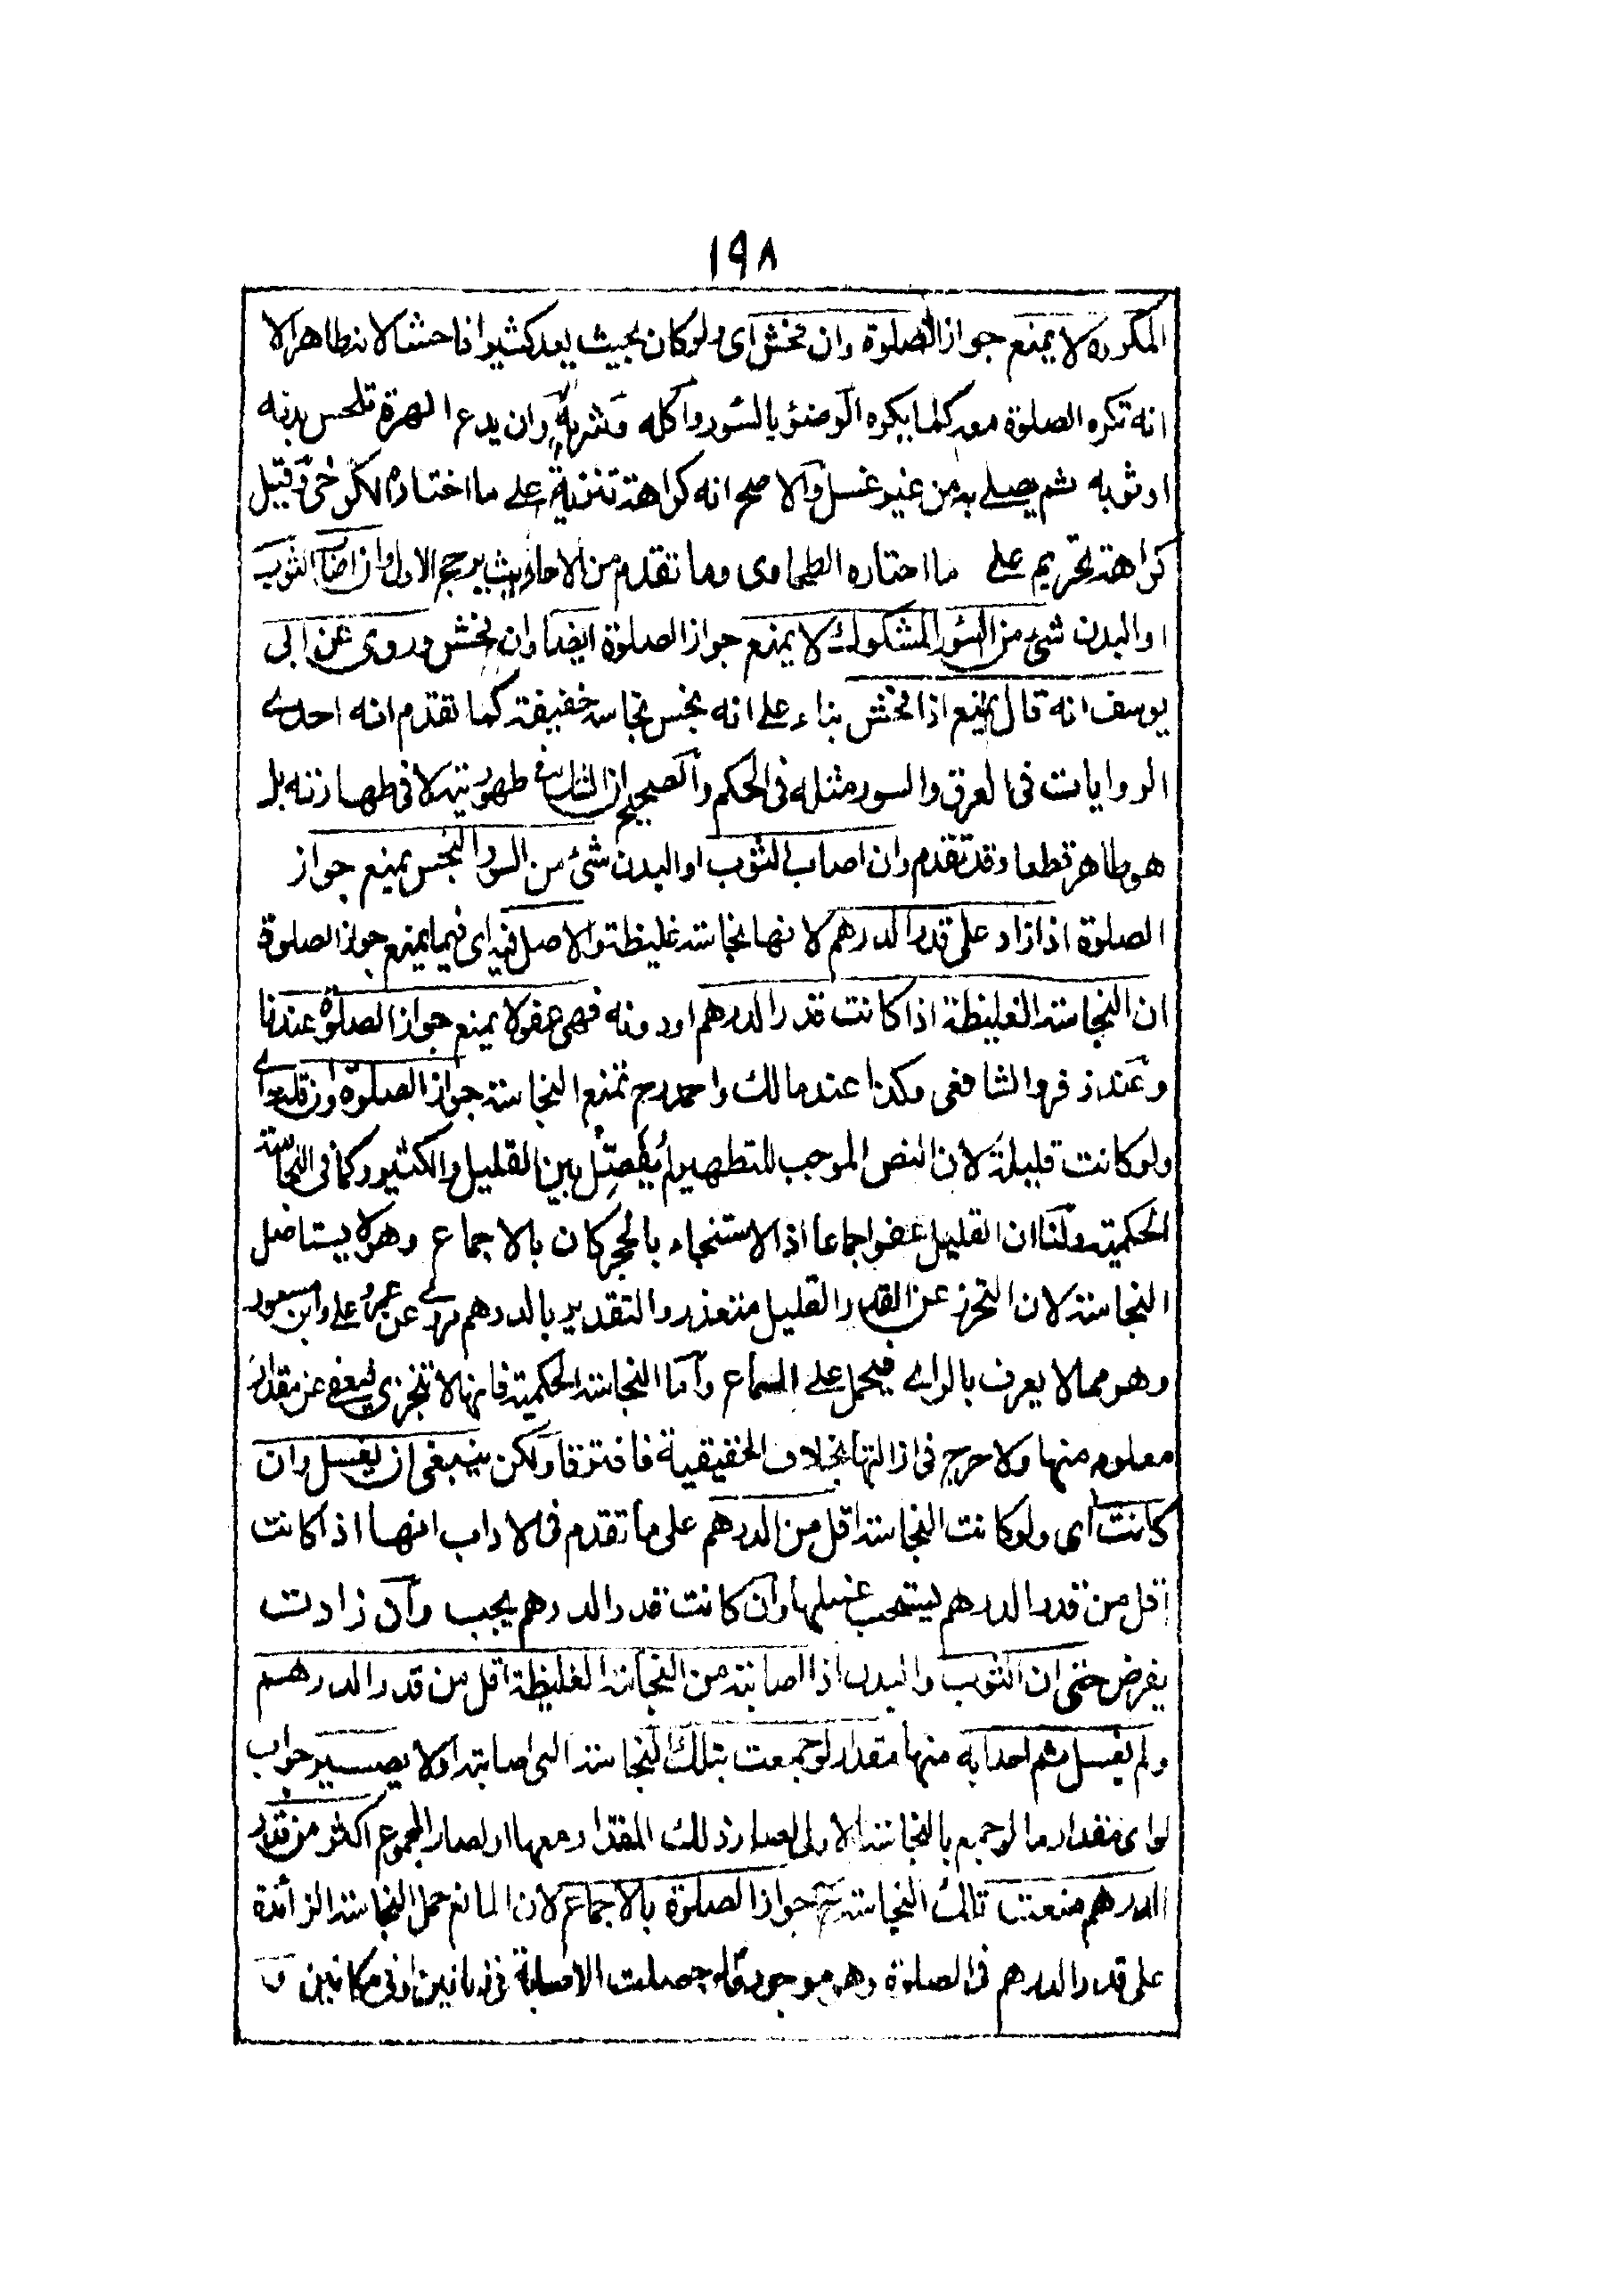 ١٩٨
المكروه لا يمنع جواز الصلوة وان فحش اى ولو كان بحيث يعد كثيرا فاحشا لانه طاهر الا
انه تكره الصلوة معه كما يكره الوضؤ بالسور واكله وشربه وان يدع الهرة تلحس بدنه
او ثوبه ثم يصلے به من غير غسل والاصح انه كراهة تنزيه علے ما اختاره الكرخى وقيل
كراهة تحريم علے ما اختاره الطحاوى وما تقدم من الاحاديث يرجح الاول وان اصاب الثوب
او البدن شئ من السؤر المشكوك لا يمنع جواز الصلوة ايضا وان فحش وروى عن ابى
يوسف انه قال يمنع اذا فحش بناء علے انه نجس نجاسة خفيفة كما تقدم انه احدے
الروايات فى العرق والسور مثله فى الحكم والصحيح ان الشك فے طهوريته لا فى طهارته بل
هو طاهر قطعا وقد تقدم وان اصاب الثوب او البدن شئ من السور النجس يمنع جواز
الصلوة اذا زاد على قدر الدرهم لانها نجاسة غليظة والاصل فيه اى فيما يمنع جواز الصلوة
ان النجاسة الغليظة اذا كانت قدر الدرهم او دونه فهى عفو لا يمنع جواز الصلوة عندنا
وعند زفر والشافعى وكذا عند مالك واحمد رح تمنع النجاسة جواز الصلوة وان قلت اے
ولو كانت قليلة لان النص الموجب للتطهير لم يُفَصِّل بين القليل والكثير وكما فى النجاسة
الحكمية ولنا ان القليل عفو اجماعا اذ الاستنجاء بالحجر كان بالاجماع وهو لا يستاصل
النجاسة لان التحرز عن القدر القليل متعذر والتقدير بالدرهم مروے عن عمر وعلے وابن مسعود
وهو مما لا يعرف بالراے فيحمل علے السماع واما النجاسة الحكمية فانها لا تتجزى ليعفے عن مقدار
معلوم منها ولا حرج فى ازالتها بخلاف الحقيقية فافترقا ولكن ينبغى ان يغسل وان
كانت اى ولو كانت النجاسة اقل من الدرهم على ما تقدم فى الاداب انها اذا كانت
اقل من قدر الدرهم ليستحب غسلها وان كانت قدر الدرهم يجب وان زادت
يفرض حتى ان الثوب والبدن اذا اصابته من النجاسة الغليظة اقل من قدر الدرهم
ولم يغسل ثم اصابه منها مقدار لو جمعت بتلك النجاسة التى اصابته اولا يصير جواب
لو اى مقدار ما لو جمع بالنجاسة الاولى لصار ذلك المقدار معها او لصار المجموع اكثر من قدر
الدرهم منعت تلك النجاسة جواز الصلوة بالاجماع لان المانع حمل النجاسة الزائدة
على قدر الدرهم فى الصلوة وهو موجود حصلت الاصابة فى زمانين او فى مكانين و